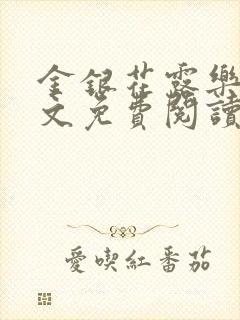 金銀花露樂
文免費閱讀
愛喫紅番茄